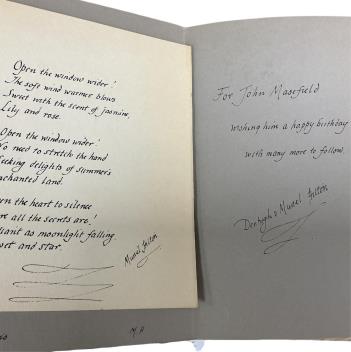 Open the window wider!
The soft wind warmer blows
Sweet with the scent of jasmine,
Lily and rose.
Open the window wider!
No need to stretch the hand
Seeking delights of summer's
Enchanted Land.
the heart to silence
are all the secrets are,
as moonlight falling
and star.
Muriel Hilton
For John Masefield
Wishing him a happy birthday
with many more to follow.
Denbigh & Muriel Hilton